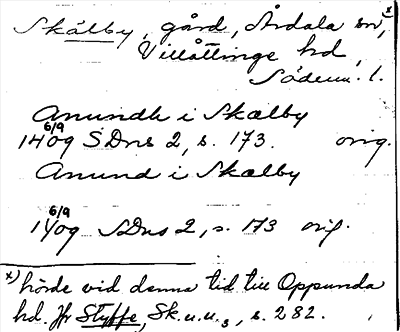 Skälby, gård, Årdala sn, x)
Villåttinge hd,
Söderm. l.
Anundh i Skælby
14 6/9 09 SDns 2, s. 173. orig.
Anund i Skælby
14 6/9 09 SDns 2, s. 173 orig.
x) hörde vid denna tid till Oppunda
hd. Jfr Styffe, Sk.u.u.3, s. 282.